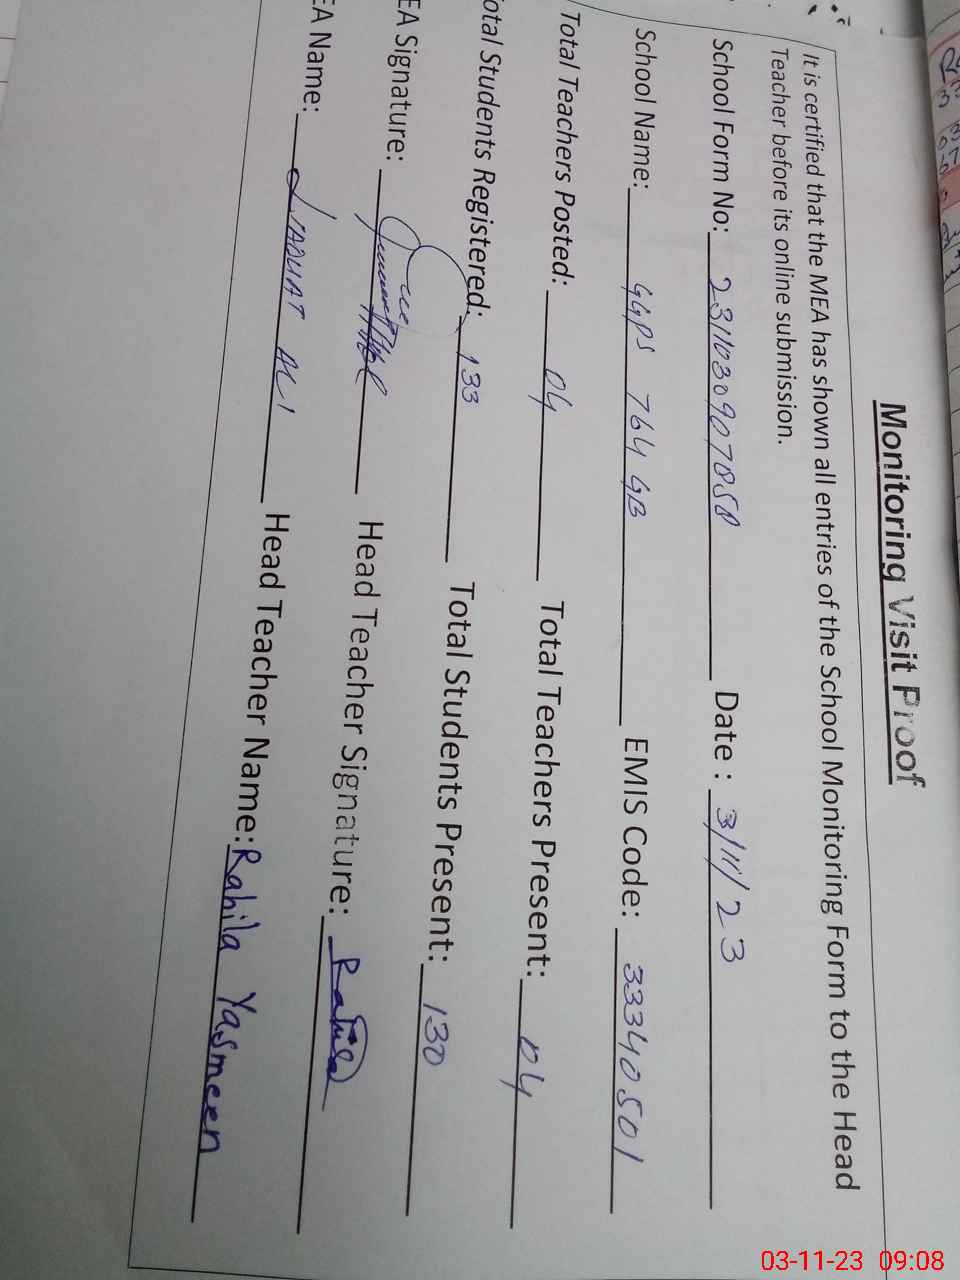 Monitoring Visit Proof
It is certified that the MEA has shown all entries of the School Monitoring Form to the Head
Teacher before its online submission.
School Form No: 2311030907058 Date : 3/11/23
School Name: GGPS 764 GB EMIS Code: 33340501
Total Teachers Posted: 04 Total Teachers Present: 04
otal Students Registered: 133 Total Students Present: 130
EA Signature: Head Teacher Signature: Rahila
EA Name: LIAQUAT ALI Head Teacher Name: Rahila Yasmeen
03-11-23 09:08